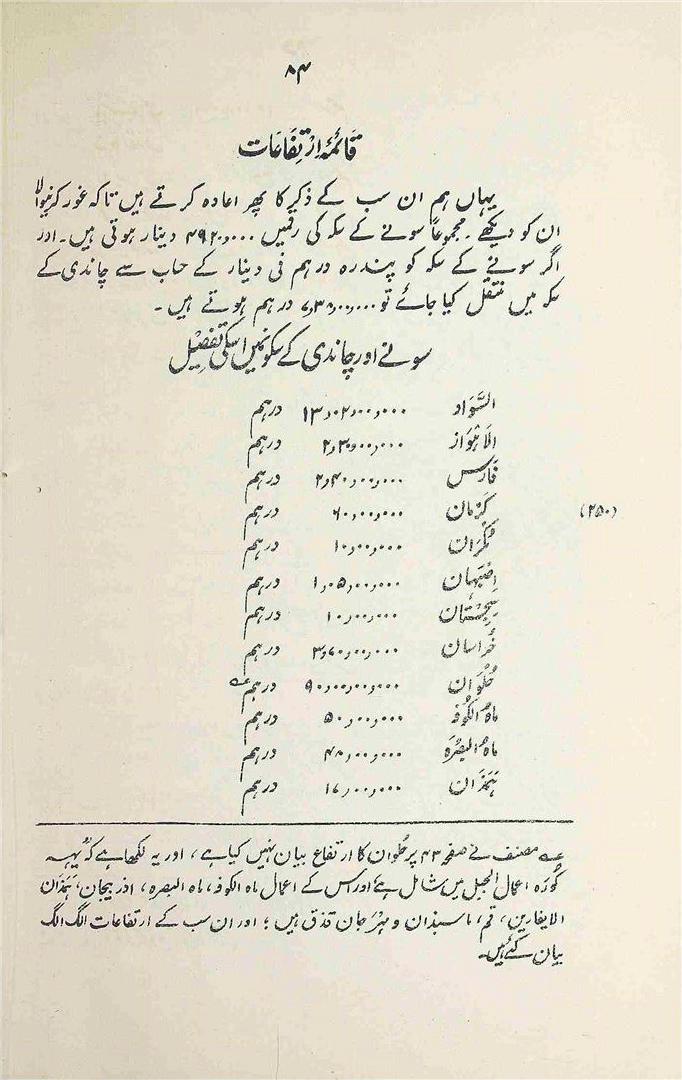 ۸۴
قَائمۂ اِرْتِفَاعَات
یہاں ہم ان سب کے ذکر کا پھر اعادہ کرتے ہیں تاکہ غور کرنیوالا
ان کو دیکھے۔ مجموعاً سونے کے سکہ کی رقمیں ۴۹۲۰٫۰۰۰ دینار ہوتی ہیں۔ اور
اگر سونے کے سکہ کو پندرہ درہم فی دینار کے حساب سے چاندی کے
سکہ میں منتقل کیا جائے تو ۷٫۳۸٫۰۰٫۰۰۰ درہم ہوتے ہیں۔
سونے اور چاندی کے سکونمیں اسکی تفصِیْل
السَّوَاد ۱۳٫۰۲٫۰۰٫۰۰۰ درہم
الاَہْوَاز ۲٫۳۰٫۰۰٫۰۰۰ درہم
فَارس ۲٫۴۰٫۰۰٫۰۰۰ درہم
کَرْمان ۶۰٫۰۰٫۰۰۰ درہم (۲۵۰)
مُکْرَان ۱۰٫۰۰٫۰۰۰ درہم
اِصْبَہان ۱٫۰۵٫۰۰٫۰۰۰ درہم
سِجِسْتَان ۱۰٫۰۰٫۰۰۰ درہم
خُراسان ۳٫۷۰٫۰۰٫۰۰۰ درہم
حُلْوَان ۹۰٫۰۰٫۰۰٫۰۰۰ درہم عہ
مَاہ الکُوفَہ ۵۰٫۰۰٫۰۰۰ درہم
مَاہ البصْرَہ ۴۸٫۰۰٫۰۰۰ درہم
ہَمَذَان ۱۷٫۰۰٫۰۰۰ درہم
عہ مصنف نے صفحہ ۴۳ پر حُلوان کا ارتفاع بیان نہیں کیا ہے، اور یہ لکھا ہے کہ "یہہ
کُورَہ اعمال الجبل میں شامل ہے" اور اس کے اعمال ماہ الکوفہ، ماہ البصرہ، اذر بیجان، ہَمَذَان
الایغارین، قم، ماسبذان و مہْرَ جان قذق ہیں؛ اور ان سب کے ارتفاعات الگ الگ
بیان کئے ہیں۔